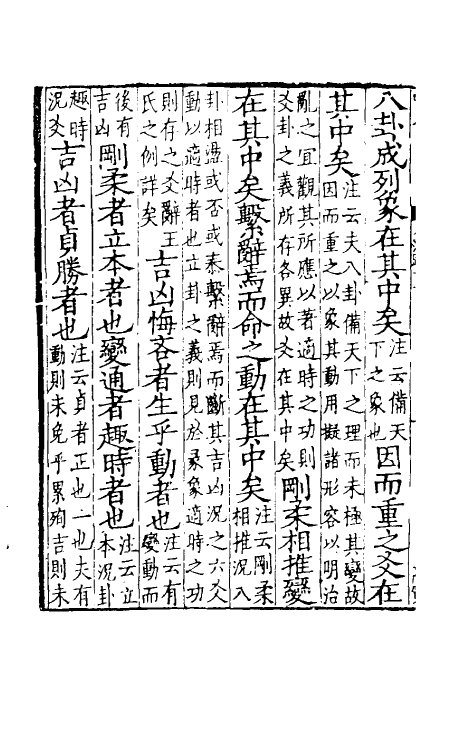 八卦成列象在其中矣注云備天下之象也因而重之爻在
其中矣注云夫八卦備天下之理而未極其變故因而重之以象其動用擬諸形容以明治
亂之宜觀其所應以著適時之功則爻卦之義所存各異故爻在其中矣剛柔相推變
在其中矣繫辭焉而命之動在其中矣注云剛柔相推況八
卦相盪或否或泰繫辭焉而斷其吉凶況之六爻動以適時者也立卦之義則見於彖象適時之功
則存之爻辭王氏之例詳矣吉凶悔吝者生乎動者也注云有變動而
後有吉凶剛柔者立本者也變通者趣時者也注云立本況卦
趣時況爻吉凶者貞勝者也注云貞者正也一也夫有動則未免乎累殉吉則未